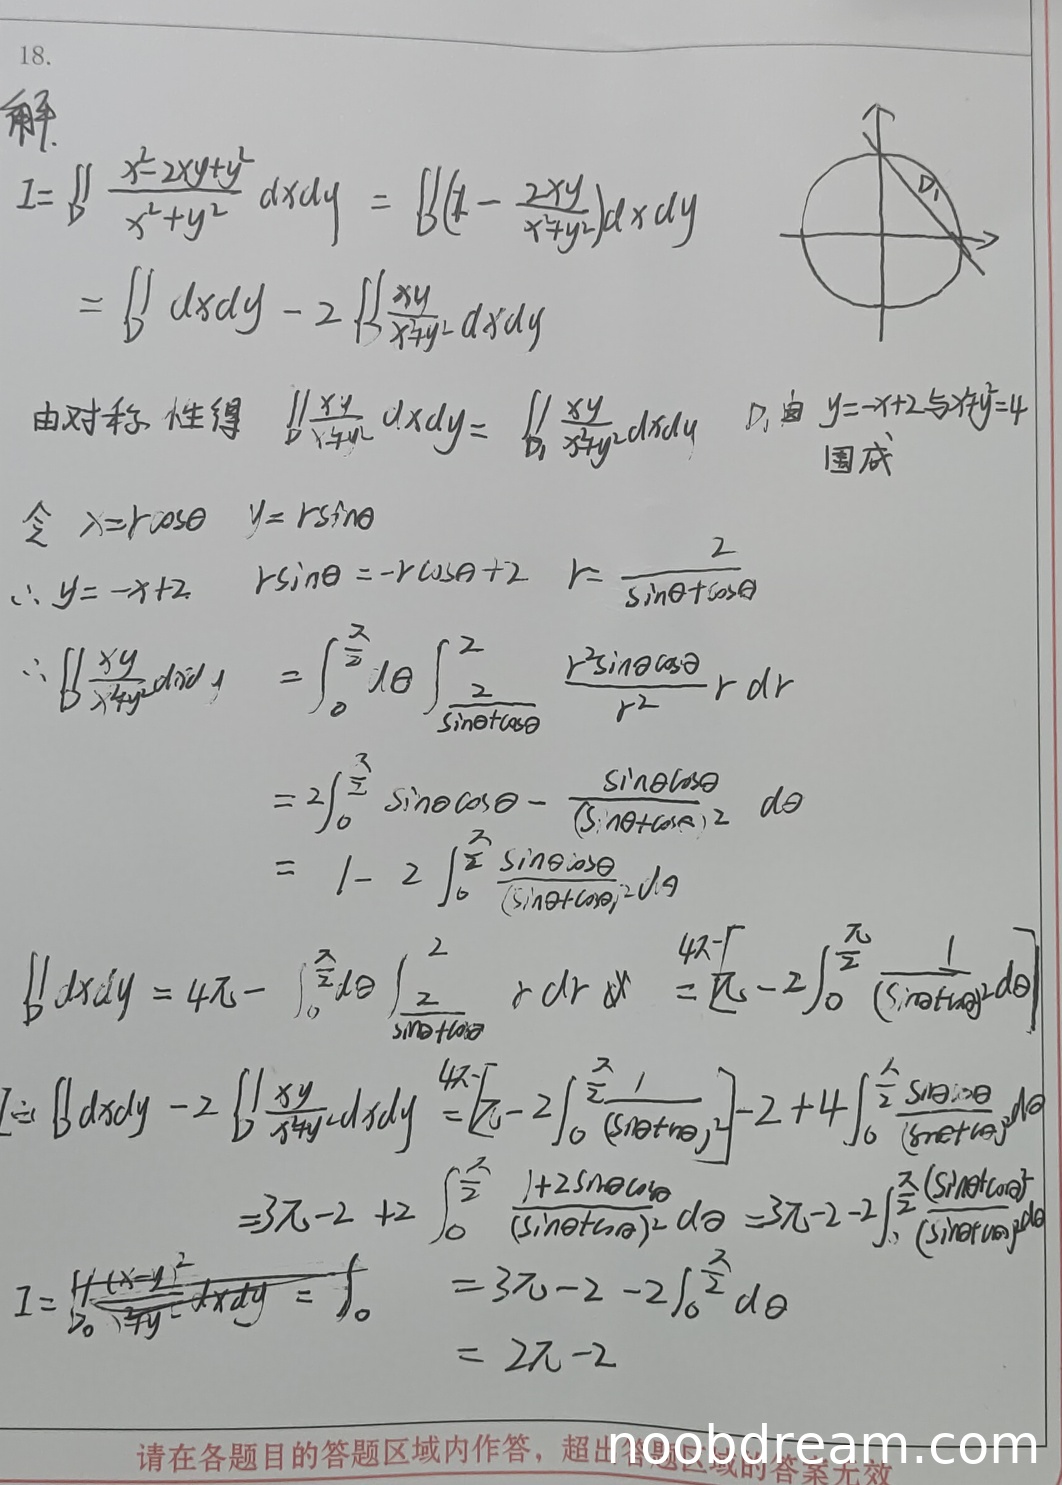 18.
解.
I = ∬_D (x²-2xy+y²)/(x²+y²) dxdy = ∬_D (1 - 2xy/(x²+y²)) dxdy
D₁
= ∬_D dxdy - 2∬_D xy/(x²+y²) dxdy
由对称性得 ∬_D xy/(x²+y²) dxdy = ∬_{D₁} xy/(x²+y²) dxdy D₁由 y=-x+2与x²+y²=4
围成
令 x=rcosθ y=rsinθ
∴ y=-x+2 rsinθ=-rcosθ+2 r= 2/(sinθ+cosθ)
∴ ∬_D xy/(x²+y²) dxdy = ∫_0^{π/2} dθ ∫_{2/(sinθ+cosθ)}^2 r²sinθcosθ/r² r dr
= 2∫_0^{π/2} sinθcosθ - sinθcosθ/(sinθ+cosθ)² dθ
= 1 - 2∫_0^{π/2} sinθcosθ/(sinθ+cosθ)² dθ
∬_D dxdy = 4π - ∫_0^{π/2} dθ ∫_{2/(sinθ+cosθ)}^2 r dr = 4π-[π - 2∫_0^{π/2} 1/(sinθ+cosθ)² dθ]
I = ∬_D dxdy - 2∬_D xy/(x²+y²) dxdy = 4π-[π - 2∫_0^{π/2} 1/(sinθ+cosθ)²] - 2 + 4∫_0^{π/2} sinθcosθ/(sinθ+cosθ)² dθ
= 3π-2 + 2∫_0^{π/2} (1+2sinθcosθ)/(sinθ+cosθ)² dθ = 3π-2-2∫_0^{π/2} (sinθ+cosθ)²/(sinθ+cosθ)² dθ
I = = 3π-2-2∫_0^{π/2} dθ
= 2π-2
请在各题目的答题区域内作答，超出答题区域的答案无效
noobdream.com